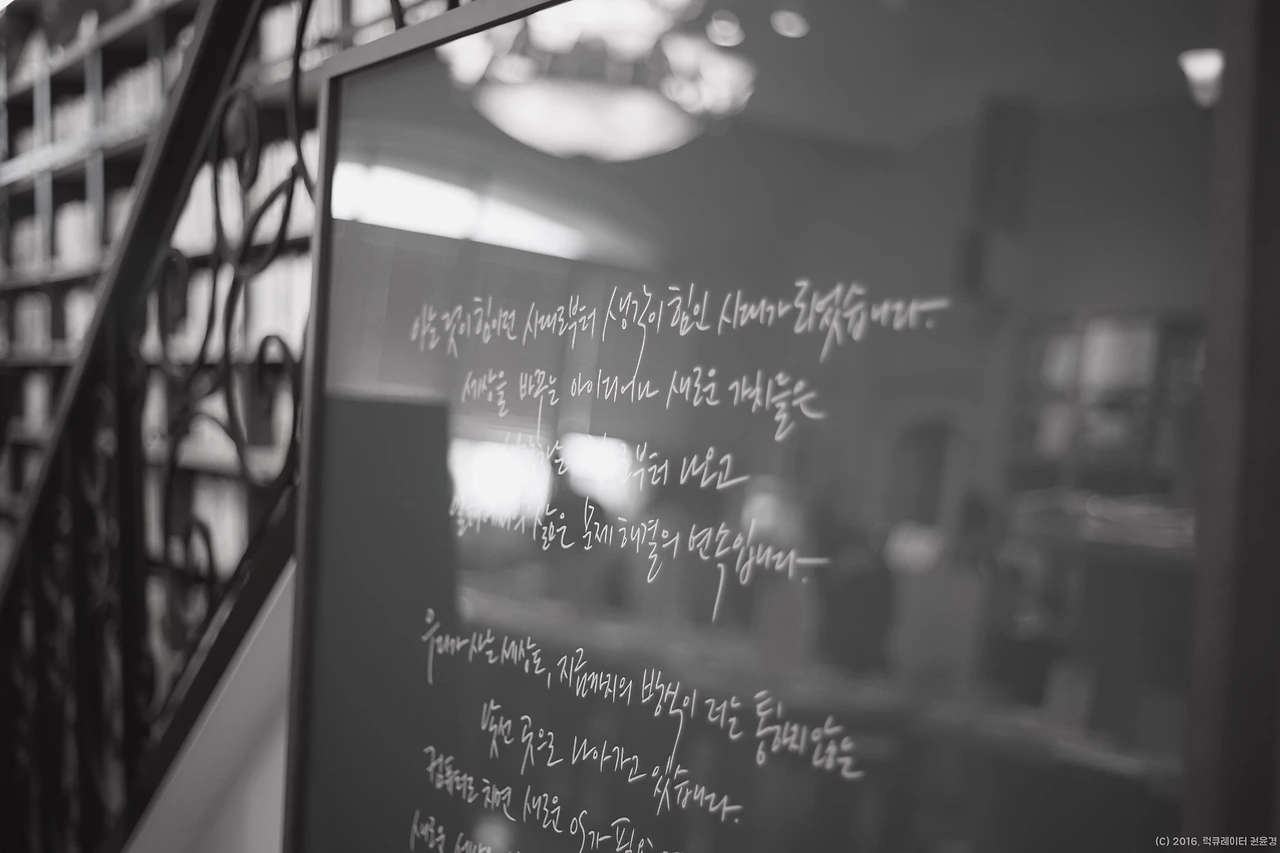 아는 것이 힘이던 시대로부터 생각이 힘인 시대가 되었습니다.
세상을 바꾸는 아이디어나 새로운 가치들은
부터 나오고
삶은 문제 해결의 연속입니다.
우리가 사는 세상도, 지금까지의 방책이 더는 통하지 않을
낯선 곳으로 나아가고 있습니다.
컴퓨터로 치면 새로운 OS가
새로운
(C) 2016. 럭큐레이터 권윤경